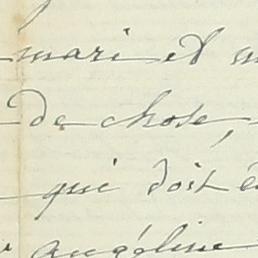 mari et
de chose,
qui doit
Angéline